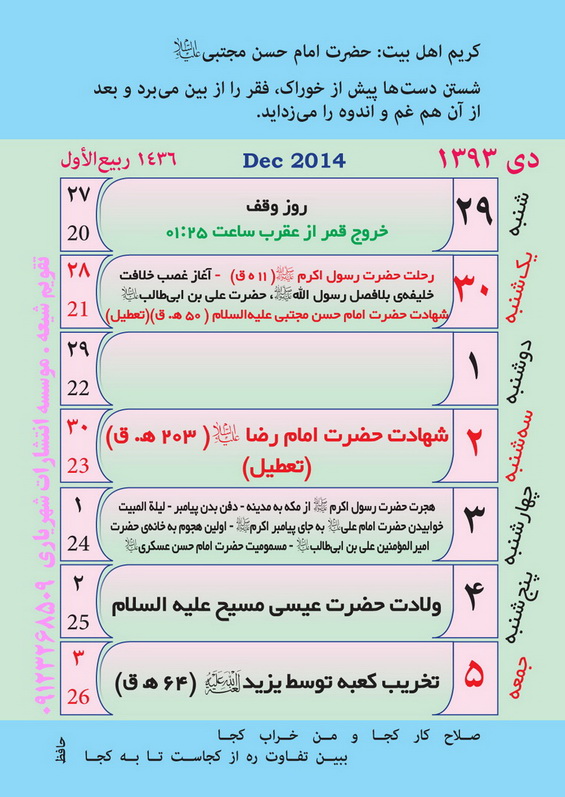 کریم اهل بیت: حضرت امام حسن مجتبی علیه‌السلام
شستن دست‌ها پیش از خوراک، فقر را از بین می‌برد و بعد
از آن هم غم و اندوه را می‌زداید.
دی ۱۳۹۳ Dec 2014 ۱۴۳۶ ربیع‌الأول
شنبه ۲۹ ۲۷ 20
روز وقف
خروج قمر از عقرب ساعت ۰۱:۲۵
یک‌شنبه ۳۰ ۲۸ 21
رحلت حضرت رسول اکرم ﷺ (۱۱ ه ق) - آغاز غصب خلافت
خلیفه‌ی بلافصل رسول الله ﷺ، حضرت علی بن ابی‌طالب علیه‌السلام
شهادت حضرت امام حسن مجتبی علیه‌السلام (۵۰ ه. ق)(تعطیل)
دوشنبه ۱ ۲۹ 22
سه‌شنبه ۲ ۳۰ 23
شهادت حضرت امام رضا علیه‌السلام (۲۰۳ ه. ق)
(تعطیل)
چهارشنبه ۳ ۱ 24
هجرت حضرت رسول اکرم ﷺ از مکه به مدینه - دفن بدن پیامبر - لیلة المبیت
خوابیدن حضرت امام علی علیه‌السلام به جای پیامبر اکرم ﷺ - اولین هجوم به خانه‌ی حضرت
امیرالمؤمنین علی بن ابی‌طالب علیه‌السلام - مسمومیت حضرت امام حسن عسکری علیه‌السلام
پنج‌شنبه ۴ ۲ 25
ولادت حضرت عیسی مسیح علیه السلام
جمعه ۵ ۳ 26
تخریب کعبه توسط یزید لعنة‌الله‌علیه (۶۴ ه ق)
تقویم شیعه . موسسه انتشارات شهریاری ۰۹۱۲۳۲۶۸۵۰۹
صلاح کار کجا و من خراب کجا
ببین تفاوت ره از کجاست تا به کجا
حافظ